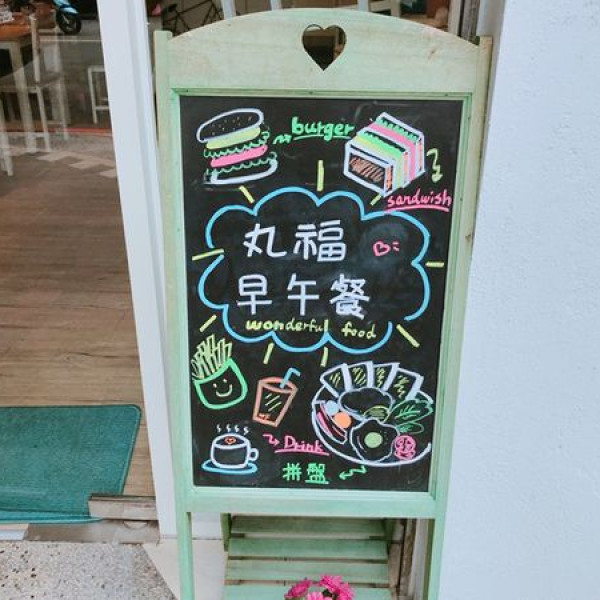 burger
sandwish
丸福
早午餐
wonderful food
Drink
拼盤